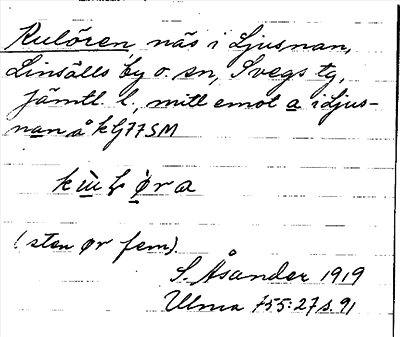 Kulören näs i Ljusnan,
Linsälls by o. sn, Svegs tg,
Jämtl. l, mitt emot a i Ljus-
nan å kbl 77 SM
(sten ør fem).
S. Åsander 1919
Ulma 155:27 s. 91